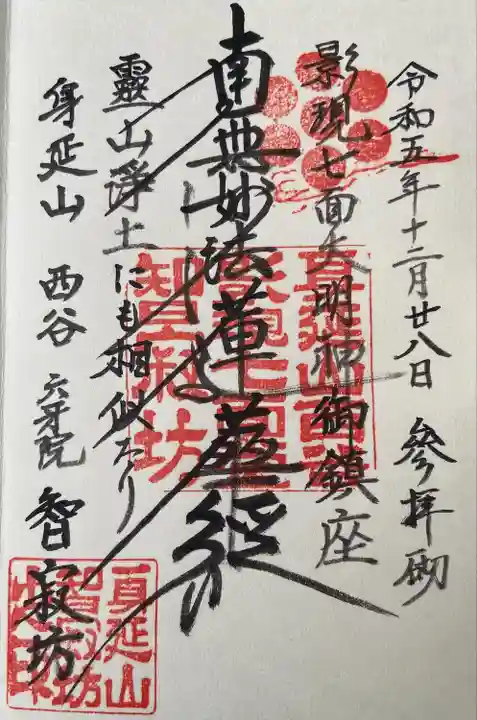 令和五年十二月廿八日 參拝砌
影現七面大明神御鎮座
南無妙法蓮華経
靈山淨土にも相似たり
身延山 西谷 六牙院 智寂坊
身延山
智寂坊